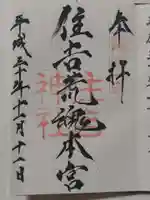 奉拝
住吉荒魂本宮
平成三十年十一月十一日
住吉
神社